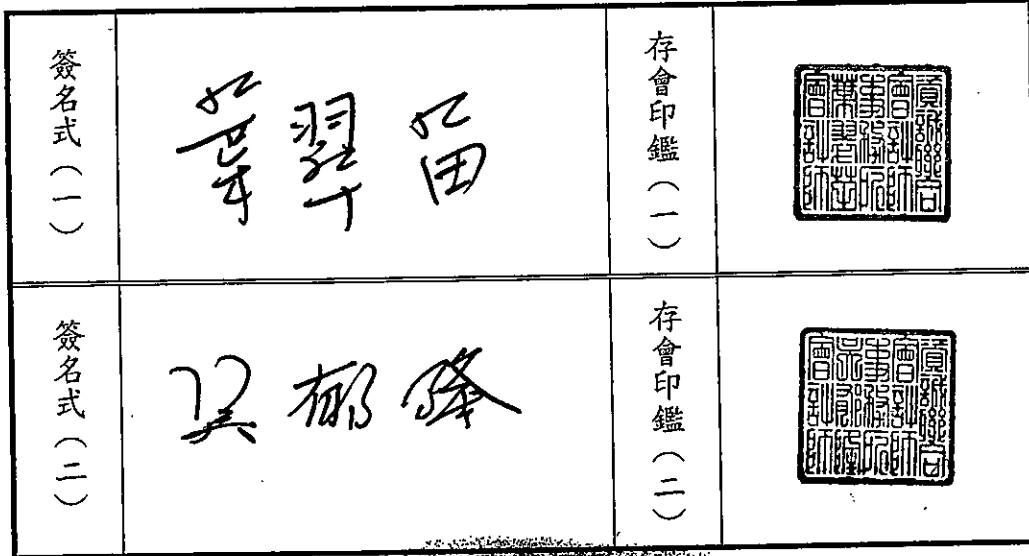 簽名式(一)
葉翠苗
存會印鑑(一)
資誠聯合
會計師
事務所
葉翠苗
會計師
簽名式(二)
吳郁隆
存會印鑑(二)
資誠聯合
會計師
事務所
吳郁隆
會計師